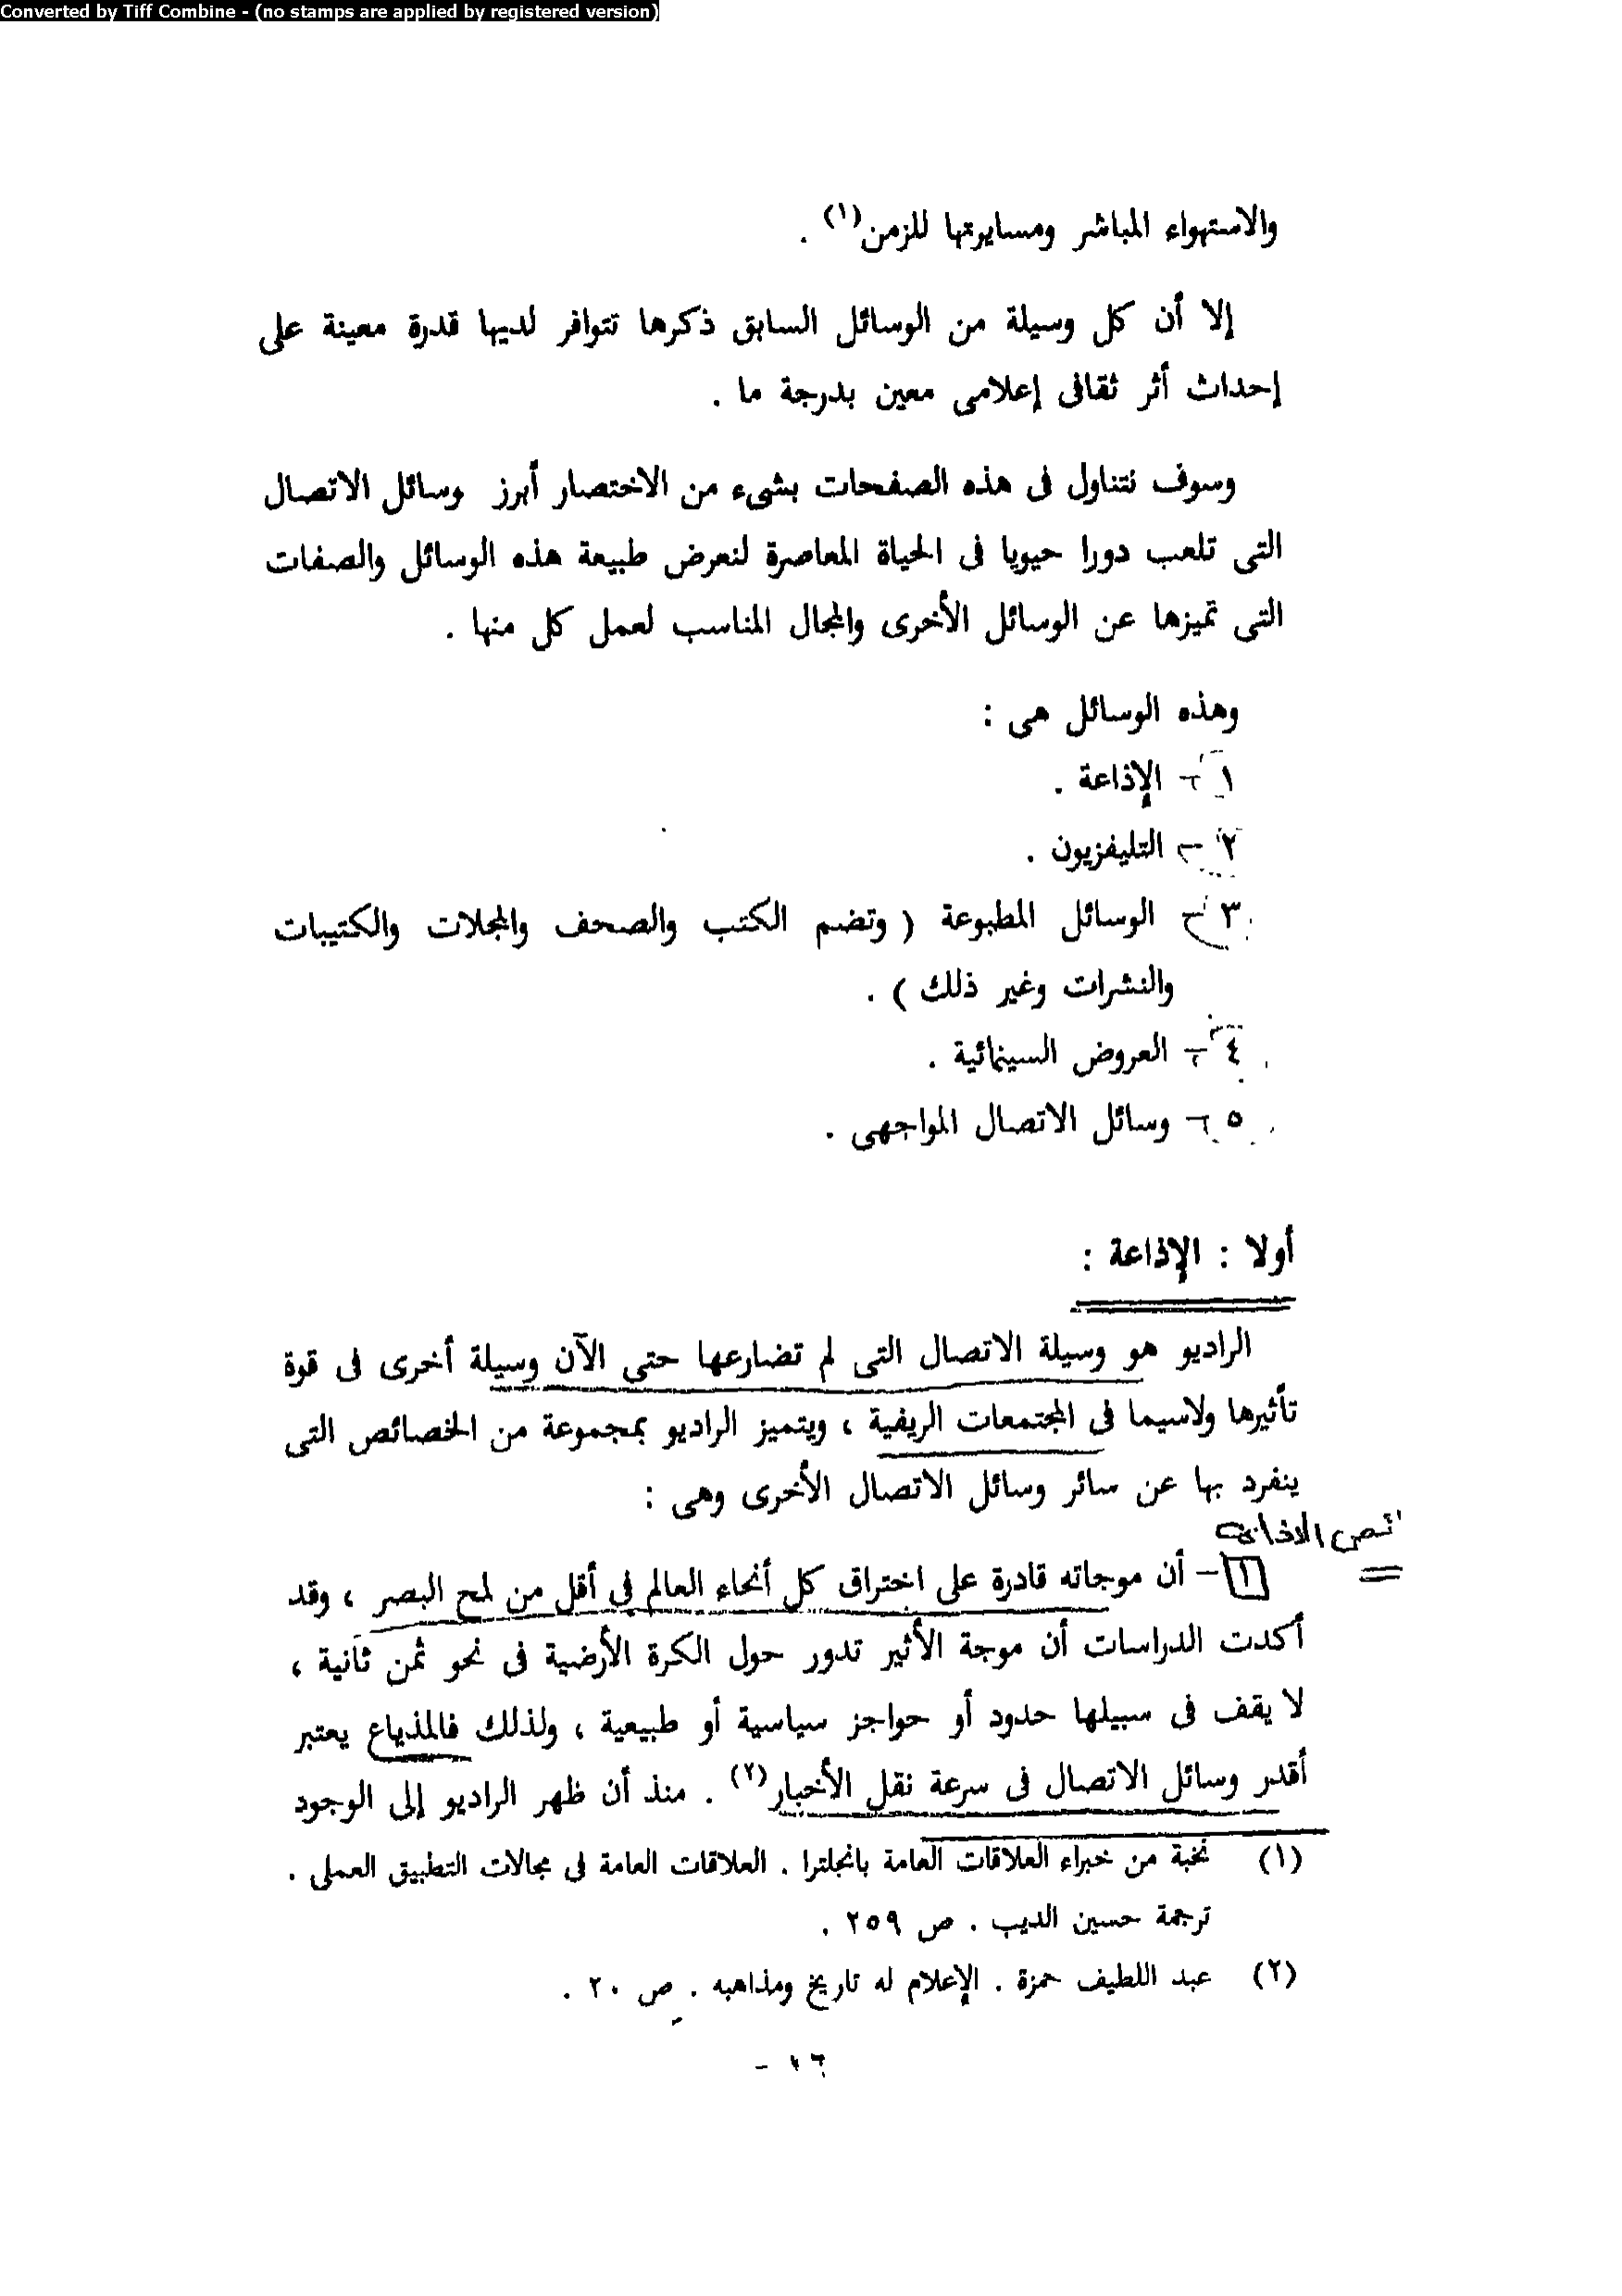 Converted by Tiff Combine - (no stamps are applied by registered version)
والاستهواء المباشر ومسايرتها للزمن(١) .
إلا أن كل وسيلة من الوسائل السابق ذكرها تتوافر لديها قدرة معينة على
إحداث أثر ثقافى إعلامى معين بدرجة ما .
وسوف نتناول فى هذه الصفحات بشىء من الاختصار أبرز وسائل الاتصال
التى تلعب دورا حيويا فى الحياة المعاصرة لنعرض طبيعة هذه الوسائل والصفات
التى تميزها عن الوسائل الأخرى والمجال المناسب لعمل كل منها .
وهذه الوسائل هى :
١ - الإذاعة .
٢ - التليفزيون .
٣ - الوسائل المطبوعة ( وتضم الكتب والصحف والمجلات والكتيبات
والنشرات وغير ذلك ) .
٤ - العروض السينمائية .
٥ - وسائل الاتصال المواجهى .
أولا : الإذاعة :
الراديو هو وسيلة الاتصال التى لم تضارعها حتى الآن وسيلة أخرى فى قوة
تأثيرها ولاسيما فى المجتمعات الريفية ، ويتميز الراديو بمجموعة من الخصائص التى
ينفرد بها عن سائر وسائل الاتصال الأخرى وهى :
١ - أن موجاته قادرة على اختراق كل أنحاء العالم فى أقل من لمح البصر ، وقد
أكدت الدراسات أن موجة الأثير تدور حول الكرة الأرضية فى نحو ثمن ثانية ،
لا يقف فى سبيلها حدود أو حواجز سياسية أو طبيعية ، ولذلك فالمذياع يعتبر
أقدر وسائل الاتصال فى سرعة نقل الأخبار(٢) . منذ أن ظهر الراديو إلى الوجود
(١) نخبة من خبراء العلاقات العامة بانجلترا . العلاقات العامة فى مجالات التطبيق العملى .
ترجمة حسين الديب . ص ٢٥٩ .
(٢) عبد اللطيف حمزة . الإعلام له تاريخ ومذاهبه . ص ٢٠ .